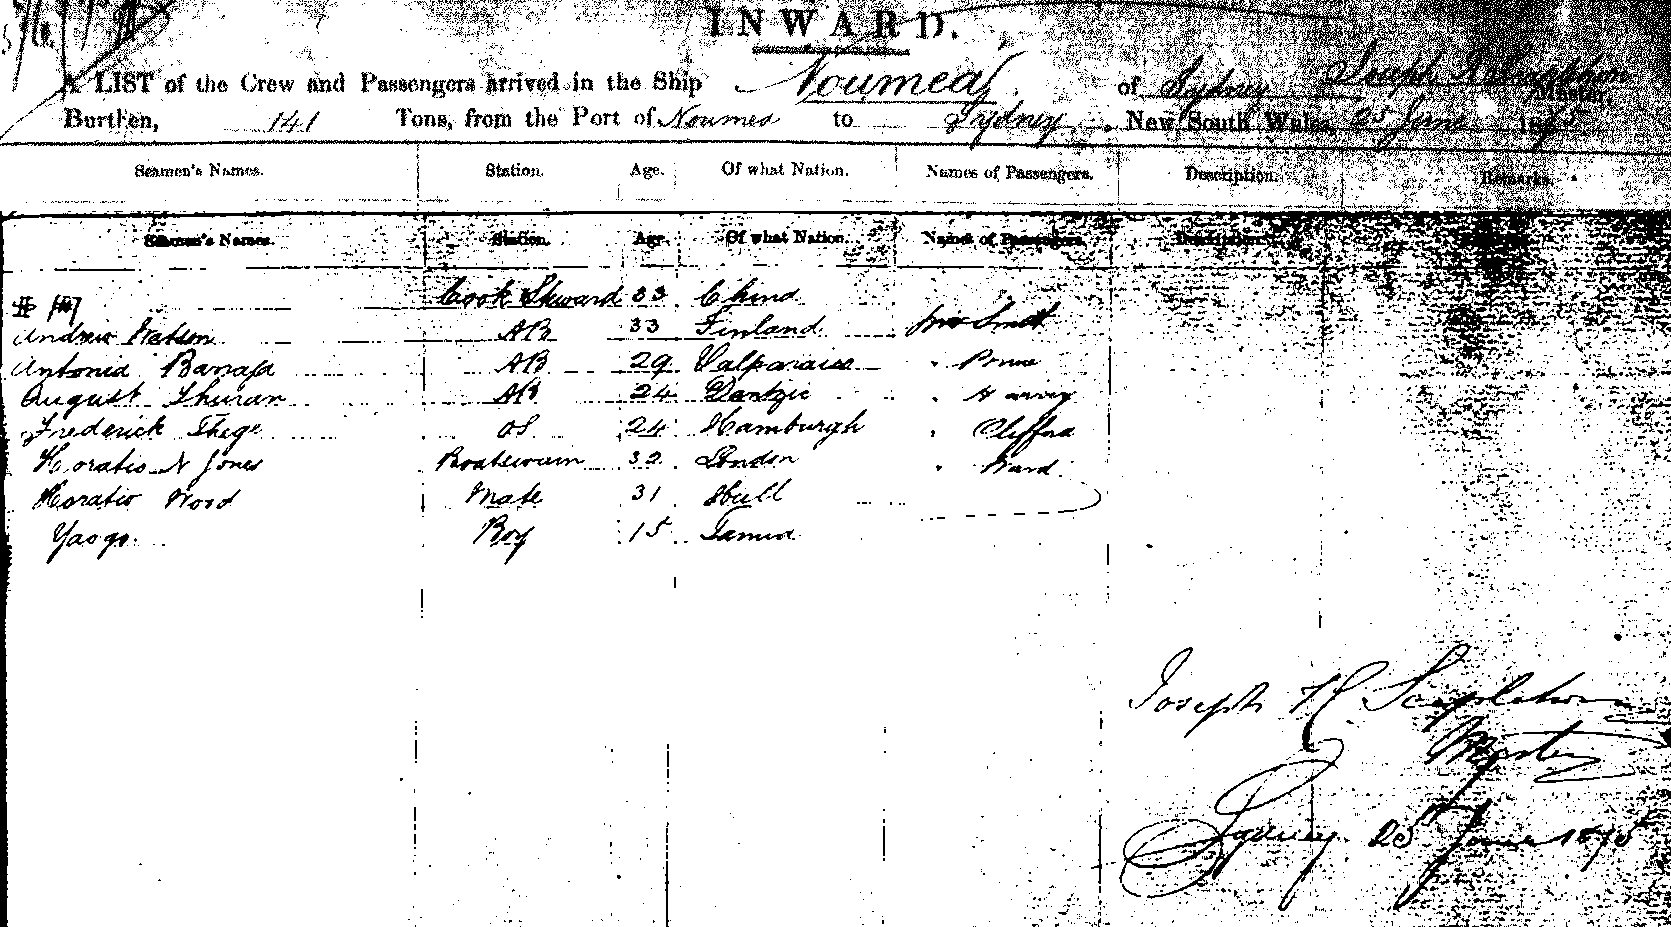 INWARD.
A LIST of the Crew and Passengers arrived in the Ship Noumea of Sydney Joseph Master,
Burthen, 141 Tons, from the Port of Noumea to Sydney, New South Wales, 25 June 1875
Seamen's Names. Station. Age. Of what Nation. Names of Passengers. Description. Remarks.
Seamen's Names. Station. Age. Of what Nation. Names of Passengers. Description.
Cook Steward 33 China
Andrew Watson AB 33 Finland Smith
Antonia AB 29 Valparaiso "
August Thuran AB 24 Dantzic " Harvey
Frederick Thege OS 24 Hamburgh " Clifford
Horatio N Jones Boatswain 32 London " Ward
Horatio Wood Mate 31 Hull
Yaogo Boy 15 Tanna
Joseph H Stapleton
Master
Sydney 25 June 1875